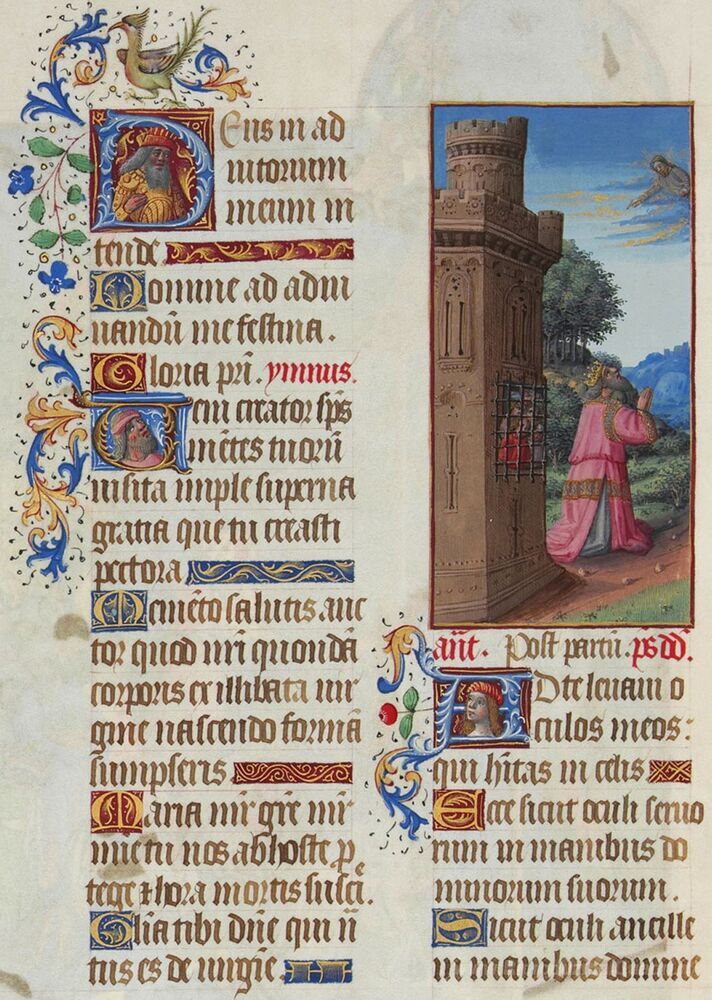 Deus in ad
iutorium
meum in
tende.
Domine ad adiu
uandū me festina.
Gloria pr̄i. ymnus.
Ueni creator sp̄s
mētes tuorū
uisita imple superna
gratia que tu creasti
pectora
Memēto salutis auc
tor quod nr̄i quondā
corporis ex illibata uir
gine nascendo formā
sumpseris
Maria mr̄ gr̄e mr̄
mie tu nos ab hoste p̄
tege & hora mortis suscī.
Gl̄ia tibi dn̄e qui n̄
tus es de uirgīe
ant̄. Post partū. ps̄ dd̄.
Ad te leuaui o
culos meos:
qui h̄itas in celis
Ecce sicut oculi seruo
rum in manibus do
minorum suorum.
Sicut oculi ancille
in manibus domine